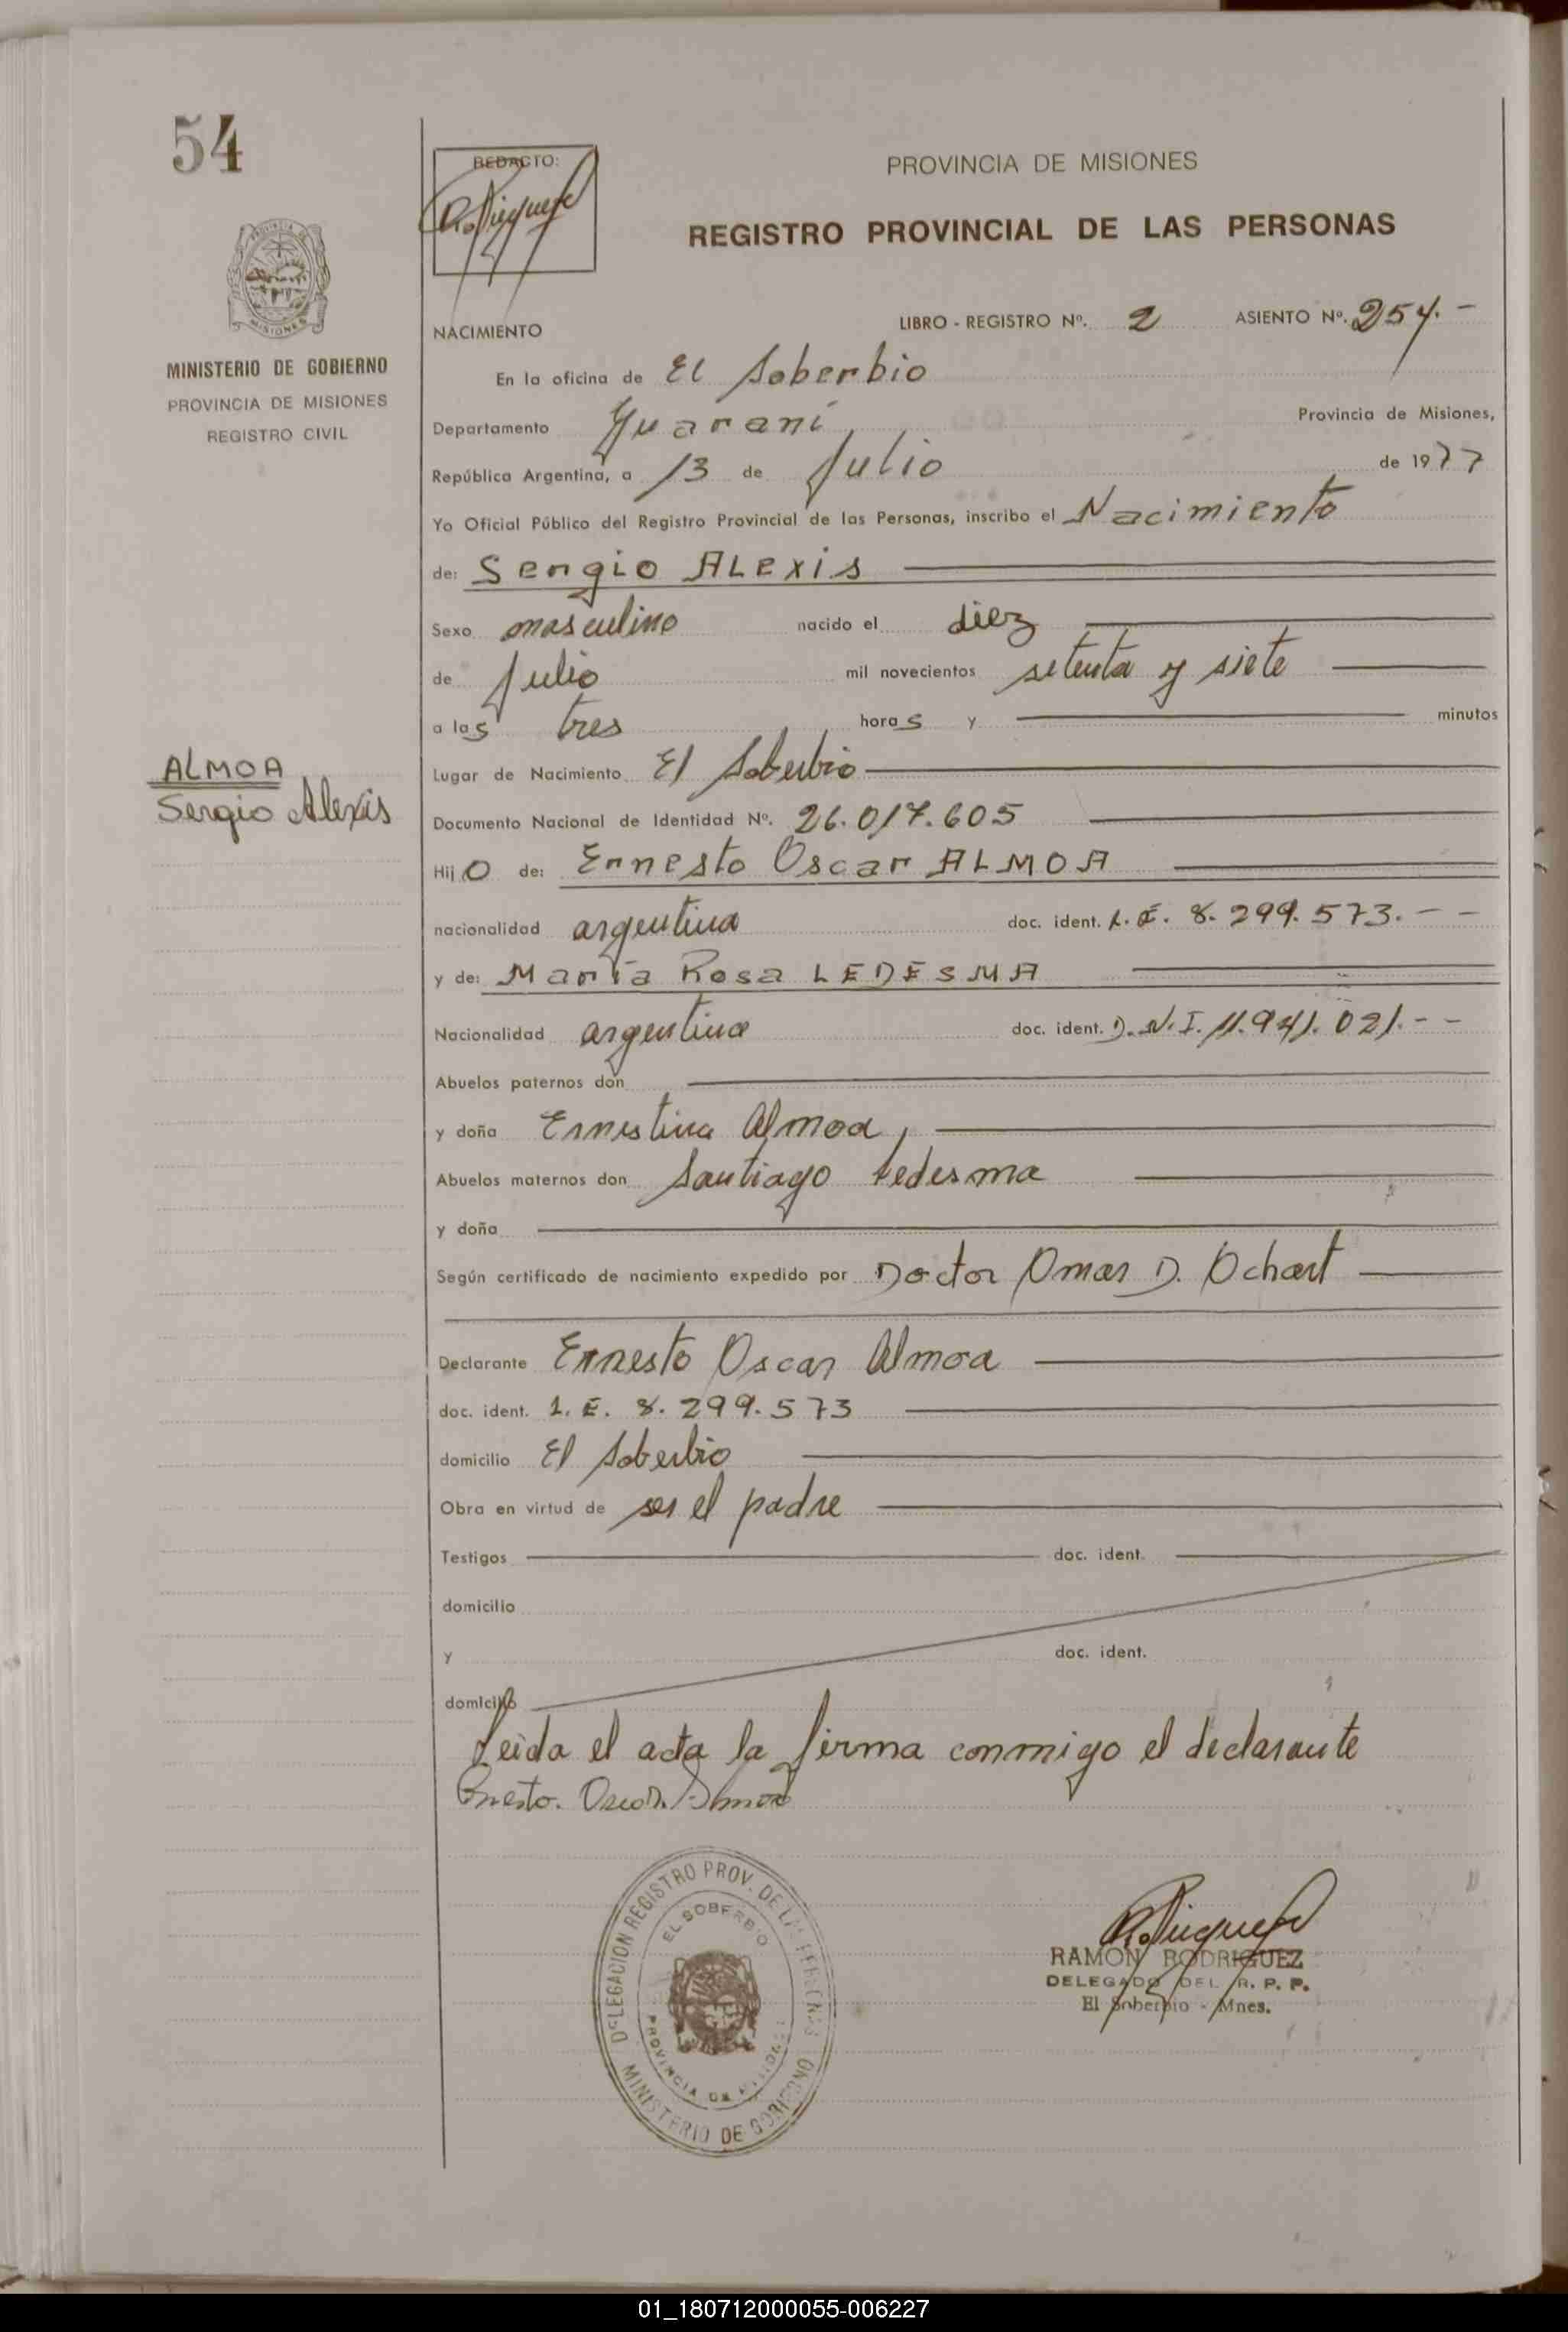 54
REDACTO:
PROVINCIA DE MISIONES
REGISTRO PROVINCIAL DE LAS PERSONAS
MINISTERIO DE GOBIERNO
PROVINCIA DE MISIONES
REGISTRO CIVIL
NACIMIENTO
LIBRO - REGISTRO Nº. 2 ASIENTO Nº. 254.-
En la oficina de El Soberbio
Departamento Guaraní Provincia de Misiones,
República Argentina, a 13 de Julio de 1977
Yo Oficial Público del Registro Provincial de las Personas, inscribo el Nacimiento
de: Sergio ALEXIS
Sexo masculino nacido el diez
de Julio mil novecientos setenta y siete
a las tres horas y minutos
ALMOA
Sergio Alexis
Lugar de Nacimiento El Soberbio
Documento Nacional de Identidad Nº. 26.017.605
Hijo de: Ernesto Oscar ALMOA
nacionalidad argentina doc. ident. L.E. 8.299.573.--
y de: María Rosa LEDESMA
Nacionalidad argentina doc. ident. D.N.I. 11.941.021.--
Abuelos paternos don
y doña Ernestina Almoa,
Abuelos maternos don Santiago Ledesma
y doña
Según certificado de nacimiento expedido por Doctor Omar D. Ochart
Declarante Ernesto Oscar Almoa
doc. ident. L.E. 8.299.573
domicilio El Soberbio
Obra en virtud de ser el padre
Testigos doc. ident.
domicilio
y doc. ident.
domicilio
Leida el acta la firma conmigo el declarante
Ernesto. Oscar. Almoa
DELEGACION REGISTRO PROV. DE LAS PERSONAS
EL SOBERBIO
PROVINCIA DE MISIONES
MINISTERIO DE GOBIERNO
RAMON RODRIGUEZ
DELEGADO DEL R. P. P.
El Soberbio - Mnes.
01_180712000055-006227